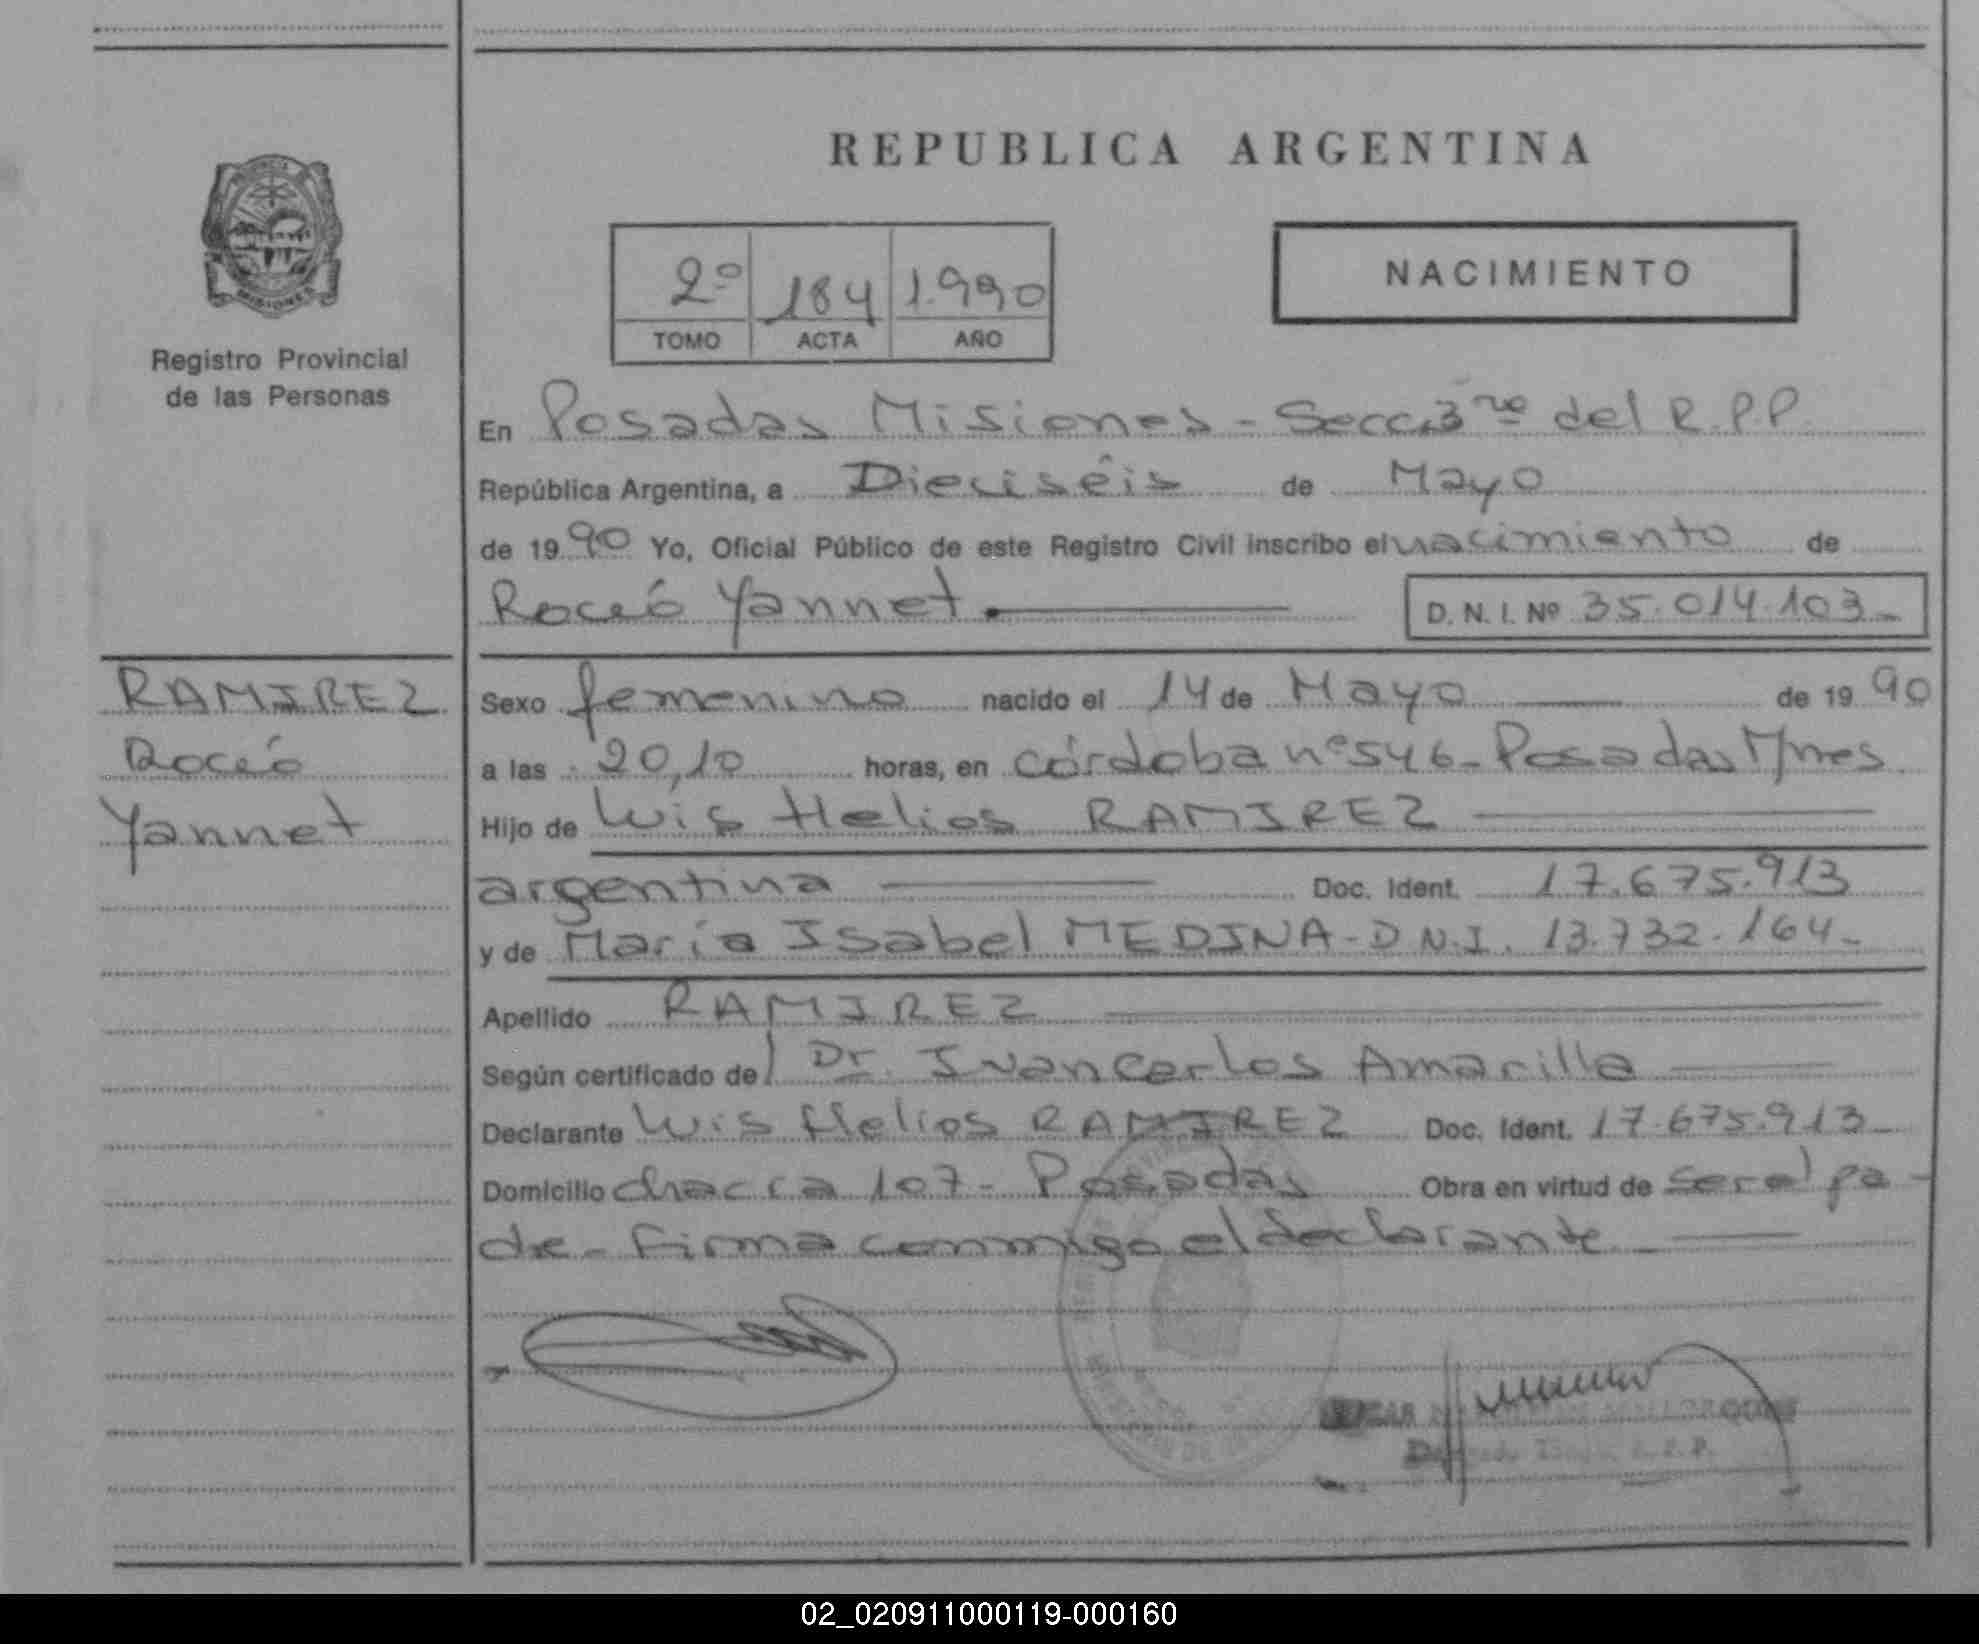 REPUBLICA ARGENTINA
PROVINCIA
MISIONES
Registro Provincial
de las Personas
2º 184 1.990
TOMO ACTA AÑO
NACIMIENTO
En Posadas Misiones - Secc. 3ra del R.P.P.
República Argentina, a Dieciséis de Mayo
de 1990 Yo, Oficial Público de este Registro Civil inscribo el nacimiento de
Rocío Yannet
D. N. I. Nº 35.014.103
RAMIREZ
Rocío
Yannet
Sexo femenino nacido el 14 de Mayo de 1990
a las 20,10 horas, en córdoba nº 546 - Posadas M/nes
Hijo de Luis Helios RAMIREZ
argentina Doc. Ident. 17.675.913
y de María Isabel MEDINA - D.N.I. 13.732.164-
Apellido RAMIREZ
Según certificado del Dr. Juan Carlos Amarilla
Declarante Luis Helios RAMIREZ Doc. Ident. 17.675.913
Domicilio chacra 107 - Posadas Obra en virtud de ser el pa-
dre - firma conmigo el declarante
02_020911000119-000160